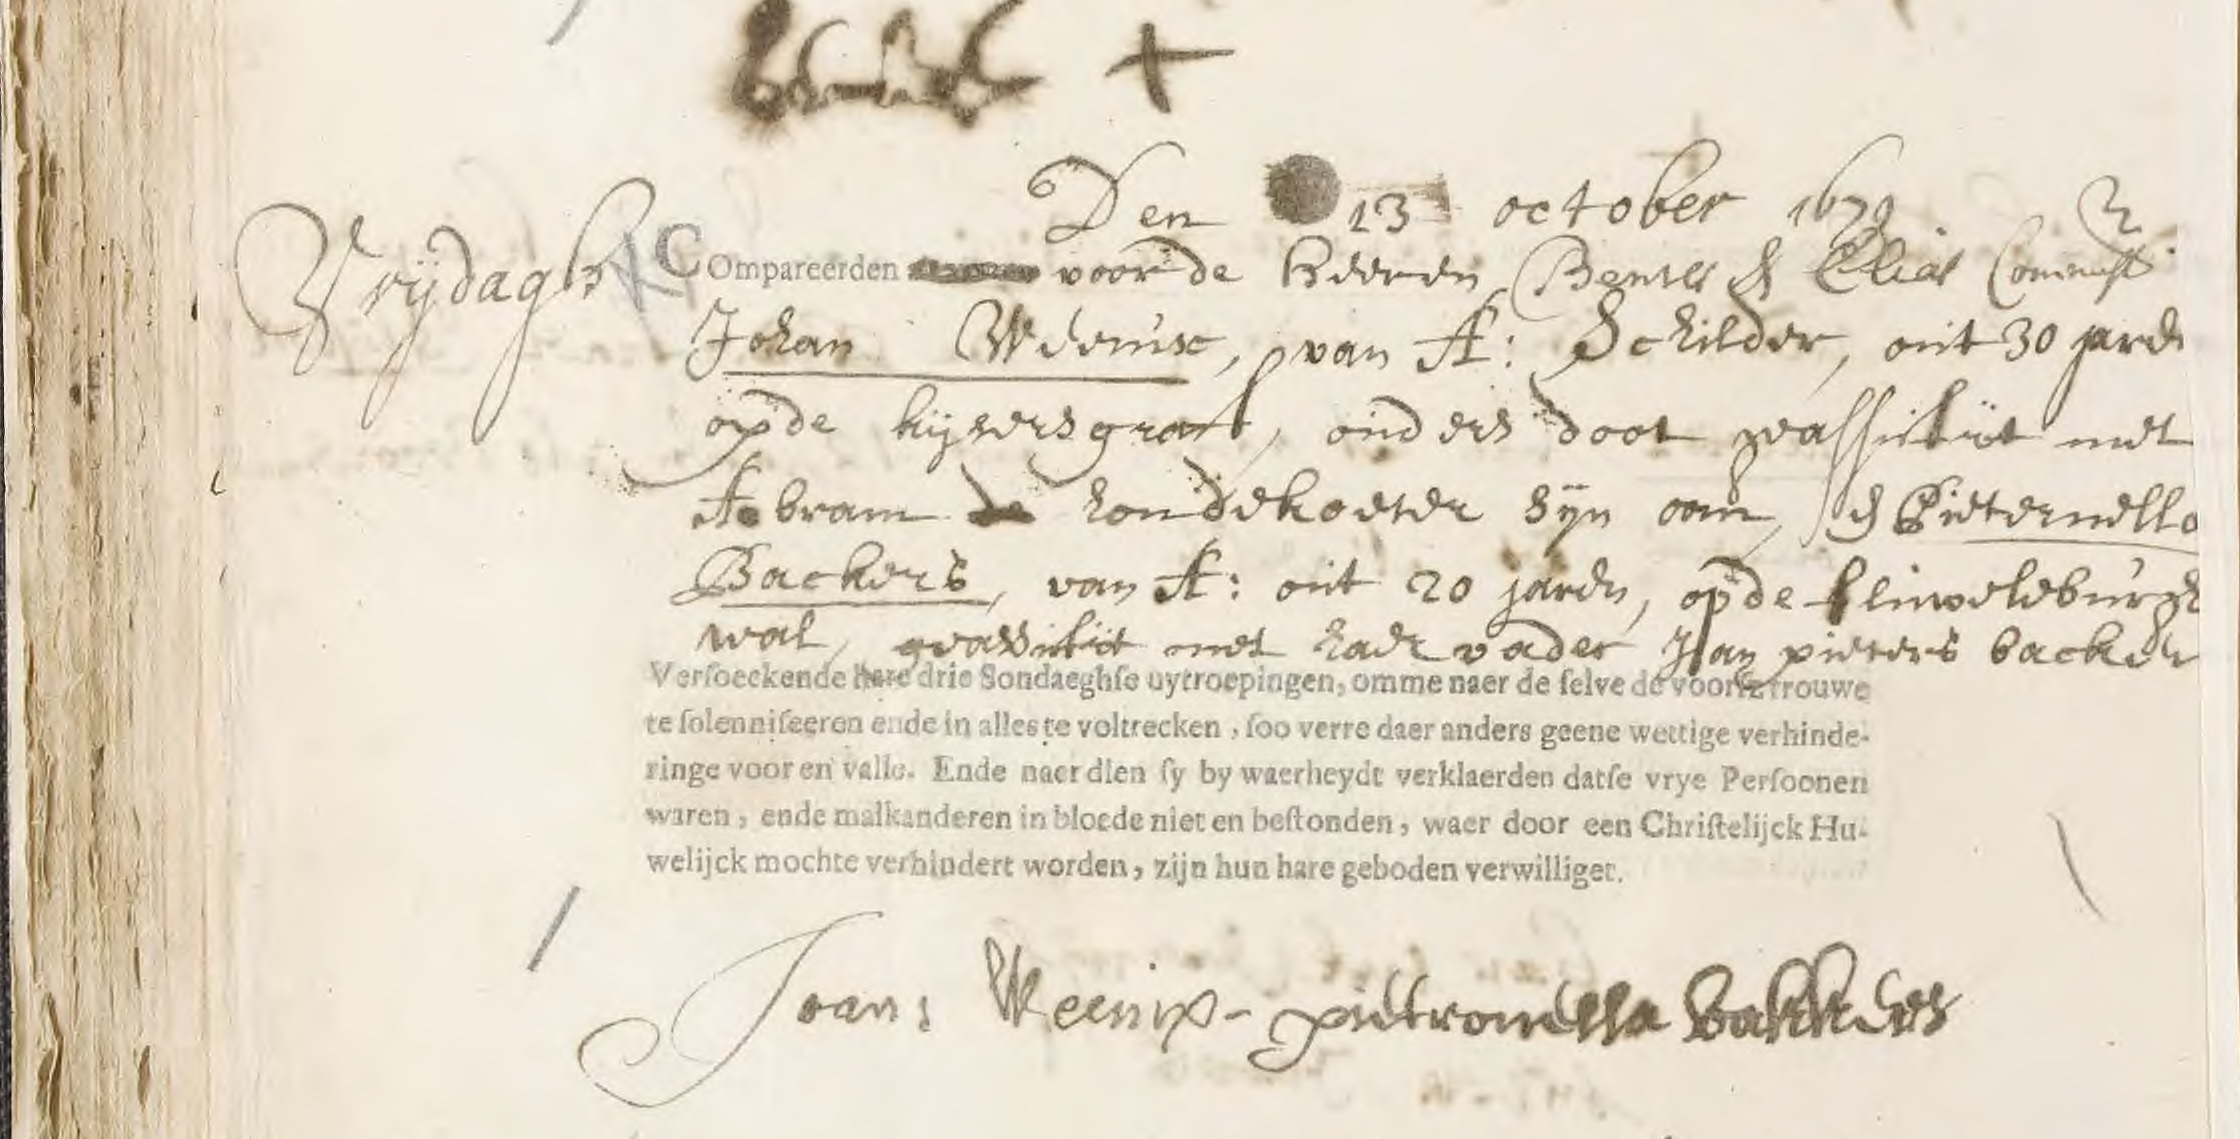 Den 13 october 1679
Vrijdaghs
COmpareerden voor de Heeren Benses & Elias Commiss
Johan Weenix, van A: Schilder, out 30 jaren
op de kijsersgraft, ouders doot geassisteert met
Abram hondekoeter sijn oom, & Pieternella
Backers, van A: out 20 jaren, op de fluweleburgh
wal, geassisteert met haer vader Jan pieters backer
Versoeckende hare drie Sondaeghse uytroepingen, omme naer de selve de voorsz trouwe
te solenniseeren ende in alles te voltrecken, soo verre daer anders geene wettige verhinde-
ringe voor en valle. Ende naer dien sy by waerheydt verklaerden datse vrye Persoonen
waren, ende malkanderen in bloede niet en bestonden, waer door een Christelijck Hu-
welijck mochte verhindert worden, zijn hun hare geboden verwilliget.
Joan: Weenix - pietronella bakkers